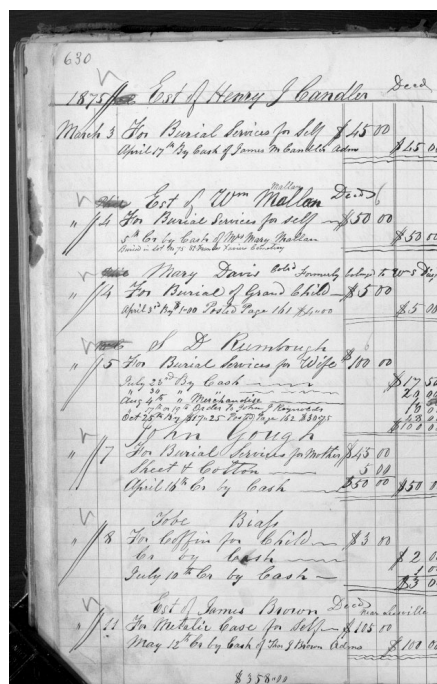 630
1875 Est of Henry J Candler Decd
March 3 For Burial Services for Self $45 00
April 17th By Cash of James M Candler Adm $45 00
Mallon
Est of Wm Mallan Decd
" 4 For Burial Services for self $50 00
5th Cr by Cash of Mrs Mary Mallan $50 00
Buried in Lot No 75 St Cemetery
Mary Davis Cold Formerly belong to W S
" 4 For Burial of Grand Child $5 00
April 3rd By $1.00 Posted Page 161 $4.00 $5 00
S D Rumbough
" 5 For Burial Services for Wife $100 00
July 23rd By Cash $17 50
" 30 " " 20 00
Aug 4th " Merchandise
Order to John Reynolds
Oct 25th By $17.25 Posted Page 162 $30.75
$100 00
John Gough
" 7 For Burial Services for Mother $45 00
Sheet & Cotton 5 00
April 16th Cr by Cash $50 00 $50 00
Tobe Biass
" 8 For Coffin for Child $3 00
Cr by Cash $2 00
July 10th Cr by Cash 1 00
$3 00
Est of James Brown Decd near
" 11 For Metalic Case for Self $105 00
May 12th Cr by Cash of Thos J Brown Adms $100 00
$358.00